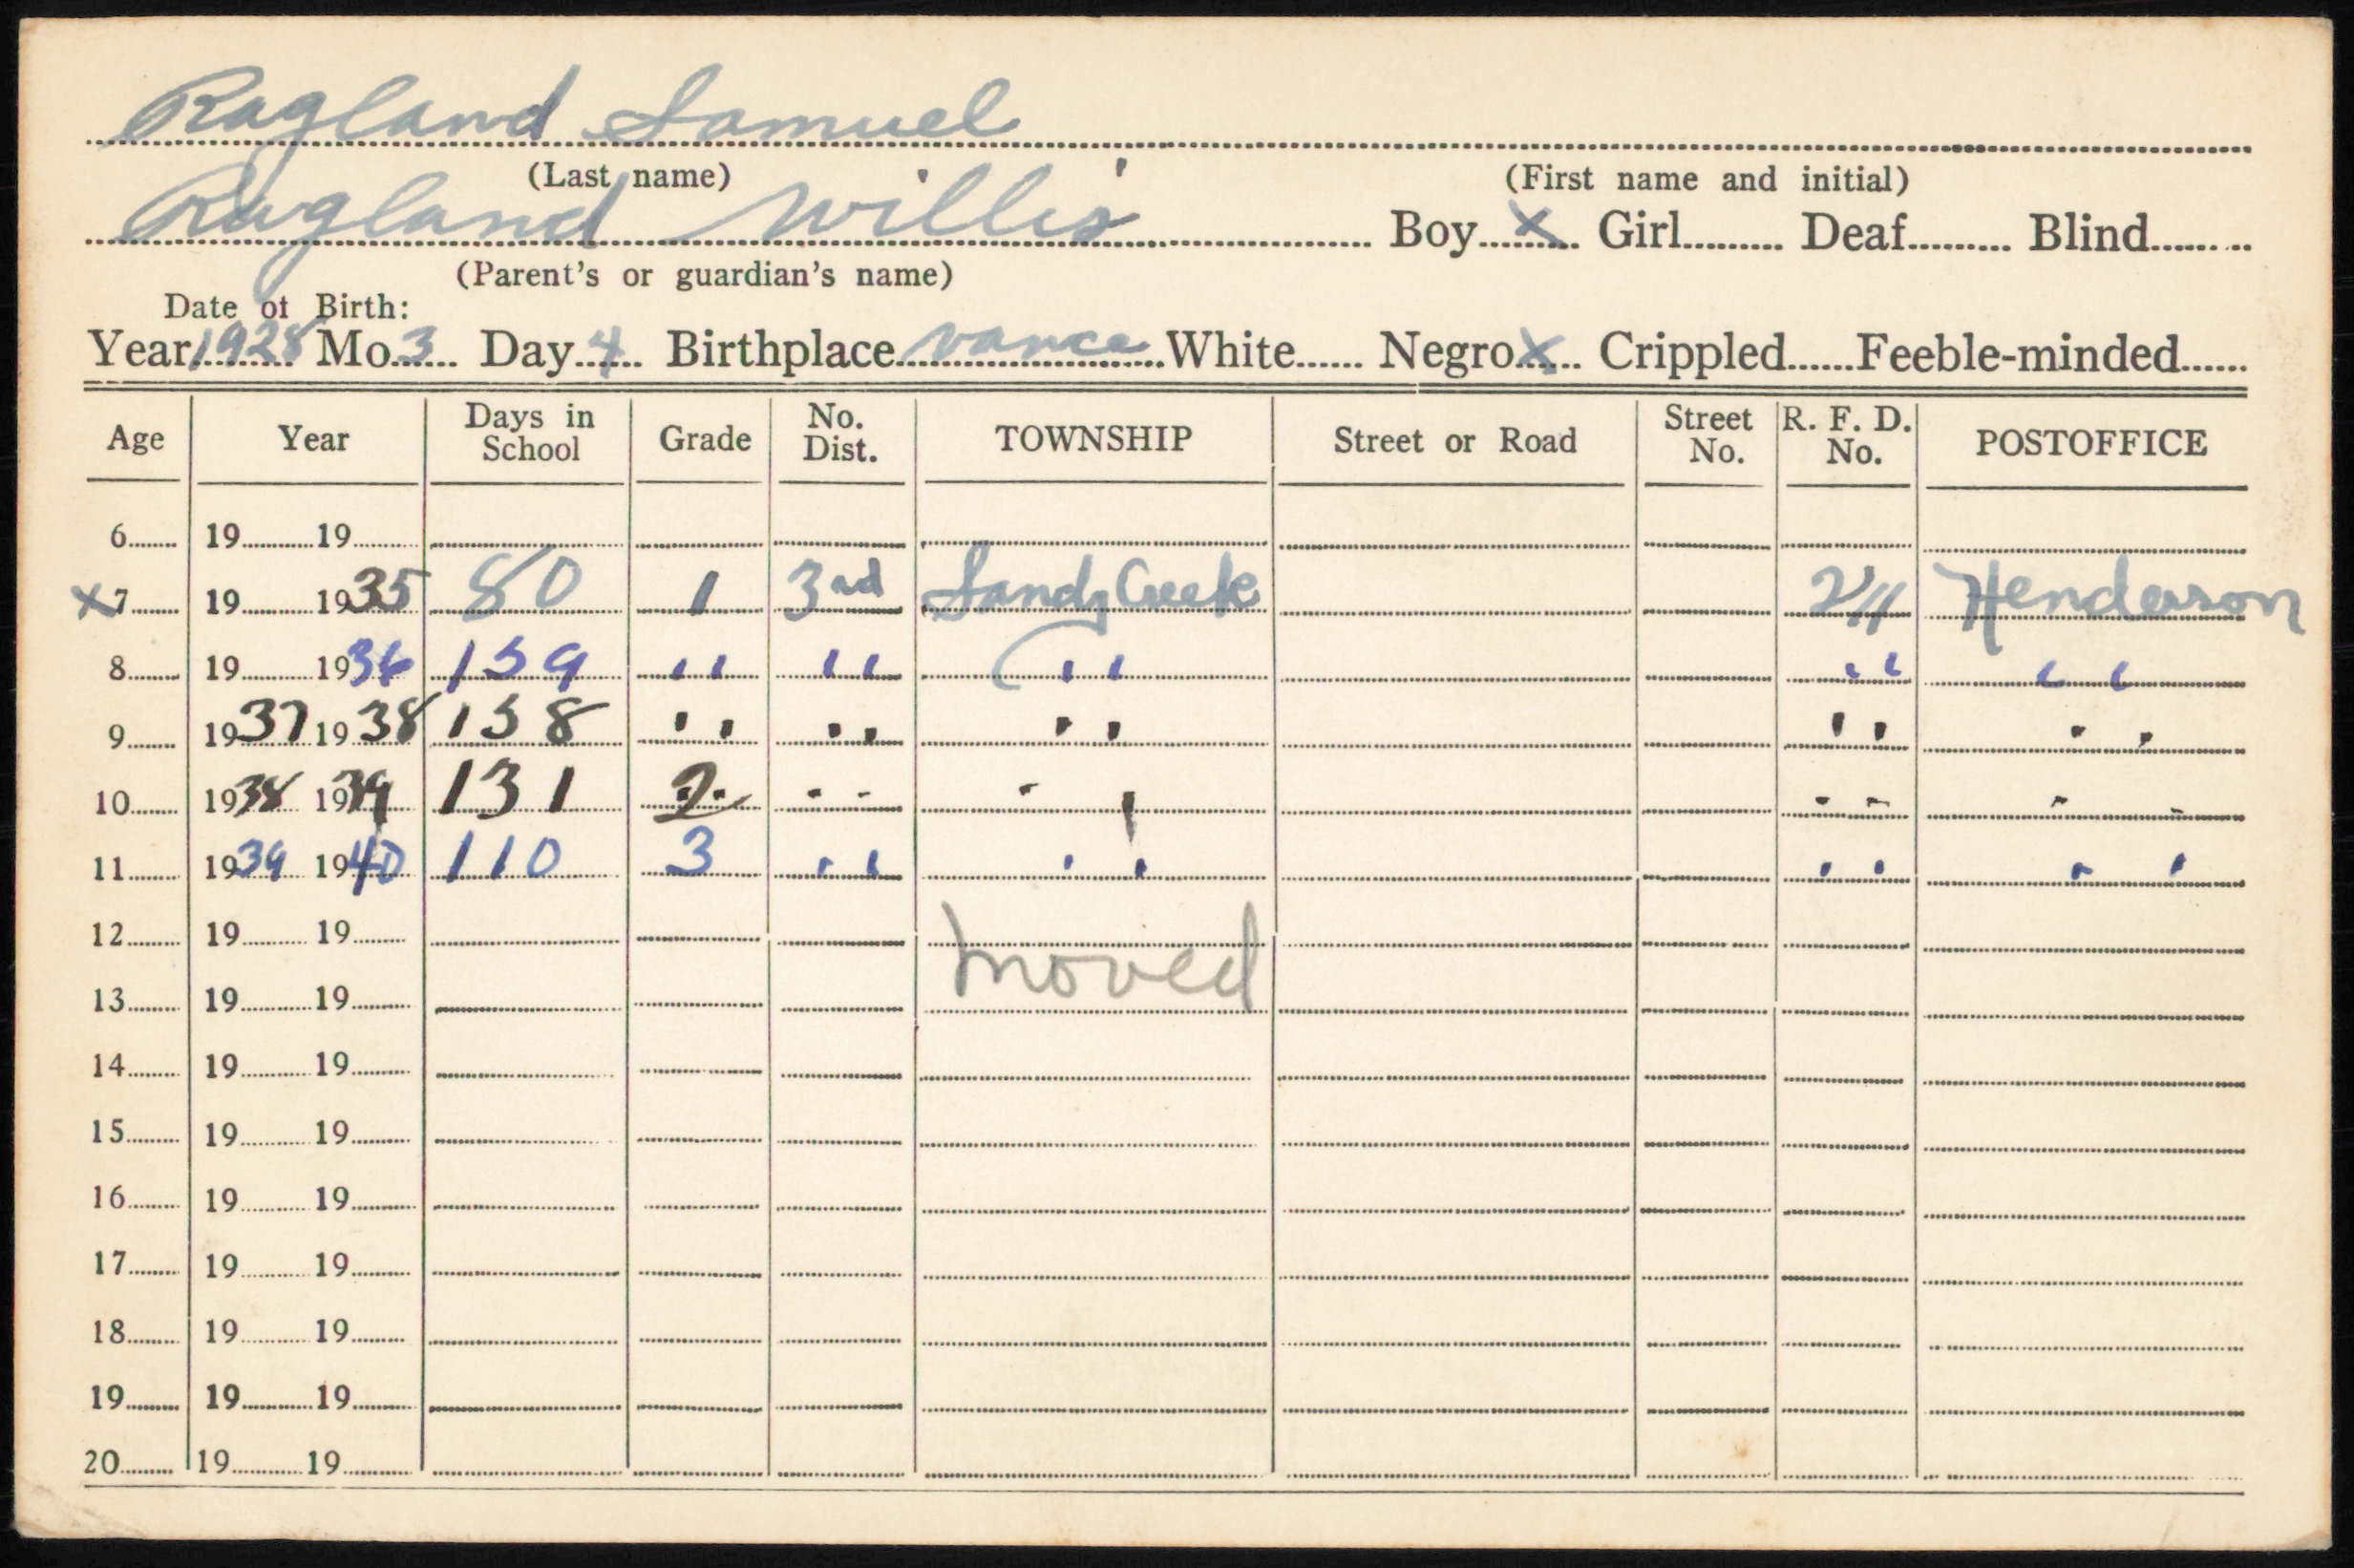 Ragland Samuel
(Last name) (First name and initial)
Ragland Willis Boy X Girl Deaf Blind
(Parent's or guardian's name)
Date of Birth:
Year 1928 Mo. 3 Day 4 Birthplace Vance White Negro X Crippled Feeble-minded
Age Year Days in School Grade No. Dist. TOWNSHIP Street or Road Street No. R. F. D. No. POSTOFFICE
6 19 19
X 7 19 1935 80 1 3rd Sandy Creek Henderson
8 19 1936 159 " " " " "
9 1937 1938 158 " " " " "
10 1938 1939 131 2 " " " "
11 1939 1940 110 3 " " " "
12 19 19
moved
13 19 19
14 19 19
15 19 19
16 19 19
17 19 19
18 19 19
19 19 19
20 19 19